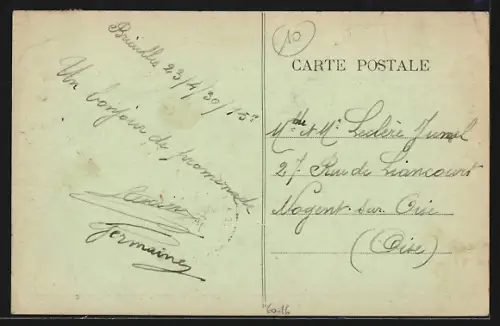 23/4/30
Un bonjour de promenade
Germaine
10
CARTE POSTALE
Mme et Mr Leclère Jumel
27 Rue de Liancourt
Nogent-sur-Oise
(Oise)
60-16